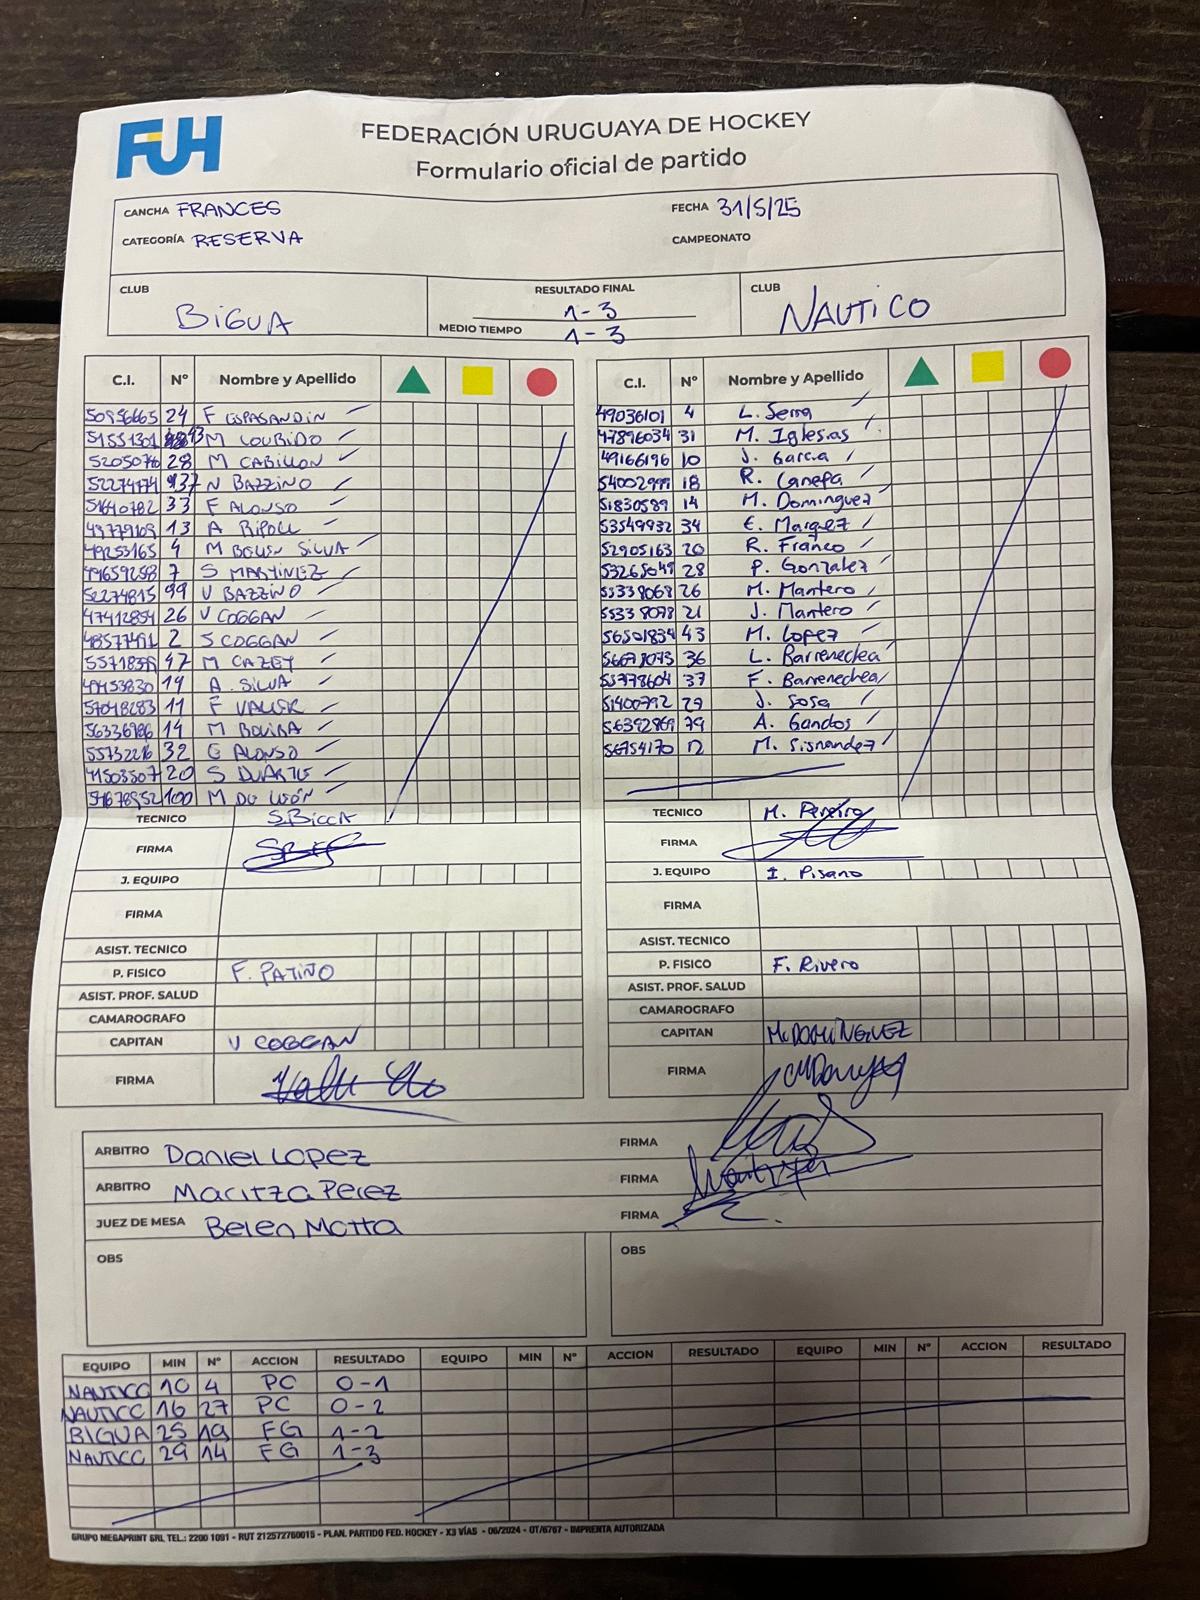 FUH
FEDERACIÓN URUGUAYA DE HOCKEY
Formulario oficial de partido
CANCHA FRANCES FECHA 31/5/25
CATEGORÍA RESERVA CAMPEONATO
CLUB BIGUA
RESULTADO FINAL 1-3
MEDIO TIEMPO 1-3
CLUB NAUTICO
C.I. Nº Nombre y Apellido
50956665 24 F ESPASANDIN
51551301 M LOURIDO
28 M CABILLON
52274174 37 N BAZZINO
51640782 33 F ALONSO
13 A RIPOLL
49253165 4 M BOLIN SILVA
49659258 7 S MARTINEZ
52274815 99 V BAZZINO
47412854 26 V COGGAN
48577491 2 S COGGAN
47 M CAZET
19 A. SILVA
57048283 11 F VALLER
56336986 14 M
55732216 32 ALONSO
41503507 20 S DUARTE
100 M DE LEÓN
TECNICO S. BICCA
FIRMA
J. EQUIPO
FIRMA
ASIST. TECNICO
P. FISICO F. PATIÑO
ASIST. PROF. SALUD
CAMAROGRAFO
CAPITAN V COGGAN
FIRMA
C.I. Nº Nombre y Apellido
49036101 4 L. Serra
47896034 31 M. Iglesias
49166196 10 J. Garcia
54002999 18 R. Canepa
51830589 14 M. Dominguez
53549932 34 E. Marquez
52905163 20 R. Franco
53265049 28 P. Gonzalez
55338068 26 M. Mantero
55338078 21 J. Mantero
56501834 43 M. Lopez
56671073 36 L. Barrenechea
55778604 37 F. Barrenechea
51400792 27 J. Sosa
56392869 79 A. Gandos
56754170 12 M. Sisnandez
TECNICO M. Pereira
FIRMA
J. EQUIPO I. Pisano
FIRMA
ASIST. TECNICO
P. FISICO F. Rivero
ASIST. PROF. SALUD
CAMAROGRAFO
CAPITAN M. DOMÍNGUEZ
FIRMA
ARBITRO Daniel Lopez FIRMA
ARBITRO Maritza Perez FIRMA
JUEZ DE MESA Belen Motta FIRMA
OBS OBS
EQUIPO MIN Nº ACCION RESULTADO EQUIPO MIN Nº ACCION RESULTADO EQUIPO MIN Nº ACCION RESULTADO
NAUTICO 10 4 PC 0-1
NAUTICO 16 27 PC 0-2
BIGUA 25 19 FG 1-2
NAUTICO 29 14 FG 1-3
GRUPO MEGAPRINT SRL TEL.: 2200 1091 - RUT 212572760015 - PLAN. PARTIDO FED. HOCKEY - X3 VÍAS - 06/2024 - OT/6767 - IMPRENTA AUTORIZADA